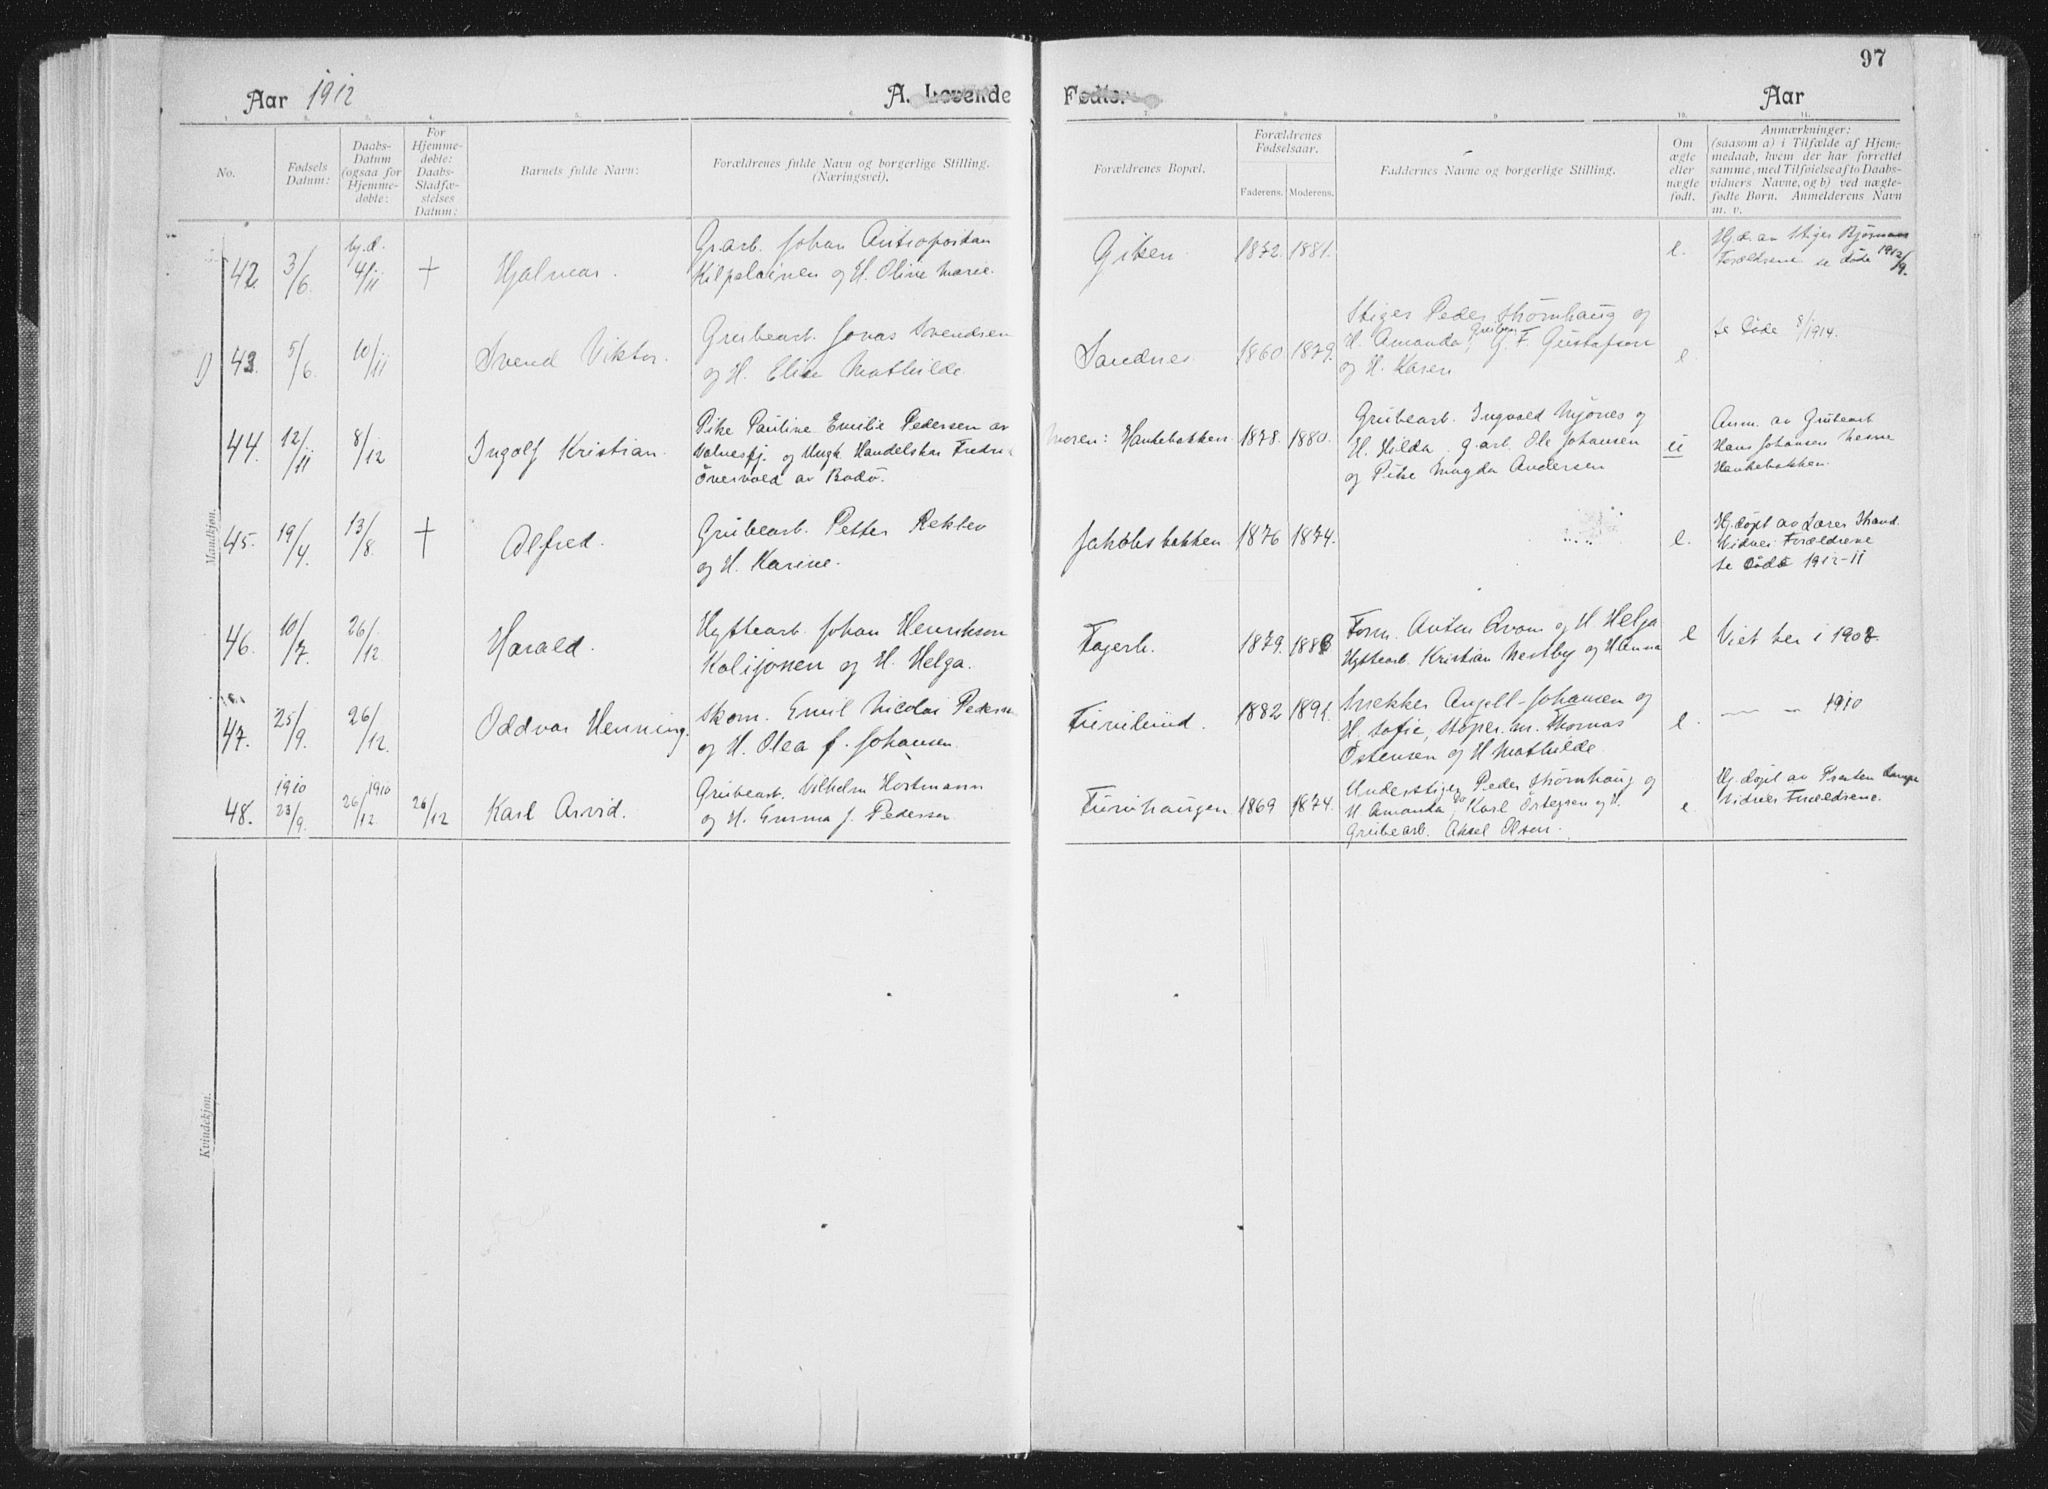 97
Aar 1912
A. Levende Fødte.
Aar
1. 2. 3. 4. 5. 6. 7. 8. 9. 10. 11.
No.
Fødsels
Datum:
Daabs-
Datum
(ogsaa for
Hjemme-
døbte:
For
Hjemme-
døbte:
Daabs-
Stadfæ-
stelses
Datum:
Barnets fulde Navn:
Forældrenes fulde Navn og borgerlige Stilling.
(Næringsvei).
Forældrenes Bopæl.
Forældrenes
Fødselsaar.
Faderens. Moderens.
Faddernes Navne og borgerlige Stilling.
Om
ægte
eller
nægte
født.
Anmærkninger:
(saasom a) i Tilfælde af Hjem-
medaab, hvem der har forrettet
samme, med Tilføielse af to Daabs-
vidners Navne, og b) ved uægte-
fødte Børn. Anmelderens Navn
m. v.
Mandkjøn.
42. 3/6. hj.d. 4/11 + Hjalmar.
Gr.arb. Johan
Kilpelainen og H. Oline Marie.
Gitsen 1872. 1881. e.
Hj.d. av Stiger
Forældrene se Døde 1912/9.
1) 43. 5/6. 10/11 Svend Viktor.
Grubearb. Jonas Svendsen
og H. Elise Mathilde
Sandnes 1860 1879.
Stiger Peder Størnhaug og
H. Amanda, Grubearb. G. F. Gustafson
og H. Karen
e.
se Døde 8/1914.
44. 12/11 8/12 Ingolf Kristian.
Pike Pauline Emilie Pedersen av
Valnesfj. og Ungk. Handelsbas Fredrik
Øvervold av Bodø.
Moren: Hankebakken 1878. 1880.
Grubearb. Ingvald Mjønes og
H. Hilda, g.arb. Ole Johansen
og Pike Magda Andersen
u
Anm. av Grubearb.
Hans Johansen
Hankebakken.
45. 19/4. 13/8. + Alfred.
Grubearb. Petter Reklev
og H. Karine.
Jakobsbakken 1876 1874. e.
Hj.døpt av Lærer Strand.
Vidner: Forældrene
se Døde 1912-11
46. 10/7. 26/12. Harald.
Hyttearb. Johan Henrikson
Kalijonen og H. Helga.
Fagerli. 1879. 1888
Form. Anton Kvam og H. Helga
Hyttearb. Kristian Nestby og Hanna
e Viet her i 1908.
47. 25/9. 26/12. Oddvar Henning.
Skom. Emil Nicolai Pedersen
og H. Olea f. Johansen.
Furulund. 1882 1891.
Snekker Angell-Johansen og
H. Sofie, Støper m. Thomas
Østensen og H Mathilde
e. — „ — 1910
48. 1910 23/9. 26/12 1910 26/12 Karl Arvid.
Grubearb. Vilhelm Hartmann
og H. Emma f. Pedersen
Furuhaugen 1869 1874.
Understiger Peder Størnhaug og
H Amanda, Do Karl Østegren og H.
Grubearb. Aksel Olsen.
e.
Hj.døpt av Presten
Vidner Forældrene.
Kvindekjøn.